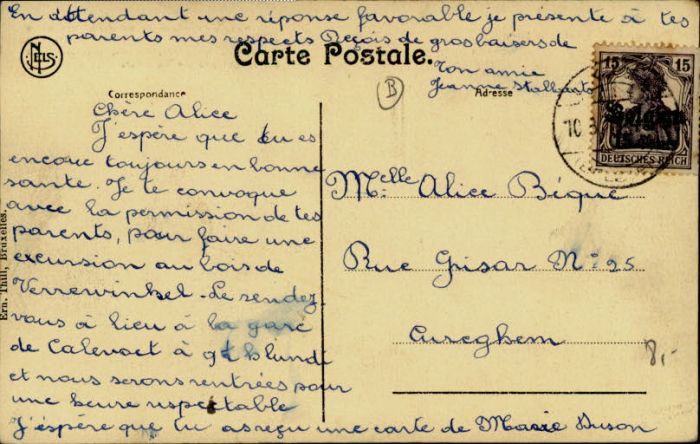 En attendant une réponse favorable je présente à tes
parents mes respects Reçois de gros baisers de
Ton amie
Jeanne
NELS
Carte Postale.
B
Correspondance
Adresse
Chère Alice
J'espère que tu es
encore toujours en bonne
sante. Je te convoque
avec la permission de tes
parents, pour faire une
excursion au bois de
Verrewinkel. Le rendez
vous à lieu à la gare
de Calevoet à lundi
et nous serons rentrées pour
une heure respectable
J'espère que tu as reçu une carte de Marie
Melle Alice Béqué
Rue Grisar No: 25
Cureghem
15 15
Belgien
DEUTSCHES REICH
10
8,-
Ern. Thill, Bruxelles.